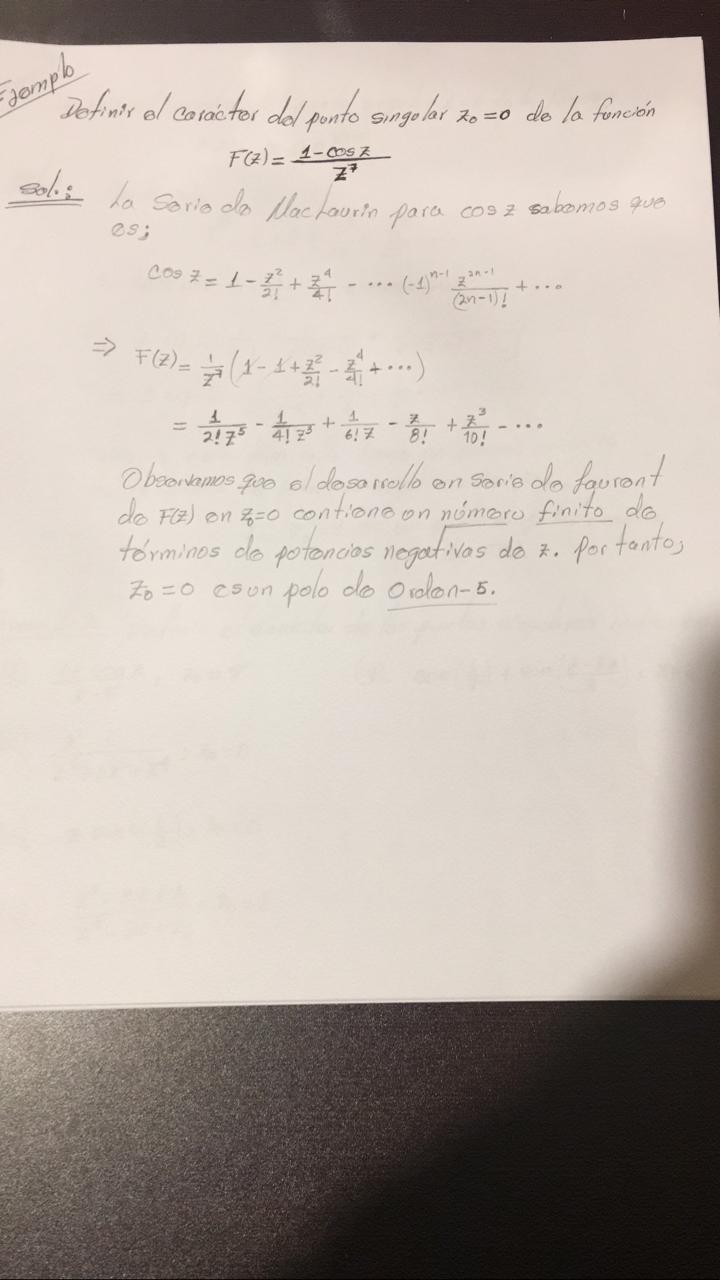 Ejemplo
Definir el carácter del punto singular z₀=0 de la función
F(z) = (1-cos z)/z⁷
Sol.:
La Serie de MacLaurin para cos z sabemos que
es;
cos z = 1 - z²/2! + z⁴/4! - ... (-1)ⁿ⁻¹ z²ⁿ⁻¹/(2n-1)! + ...
⇒ F(z) = 1/z⁷ (1 - 1 + z²/2! - z⁴/4! + ...)
= 1/2!z⁵ - 1/4!z³ + 1/6!z - z/8! + z³/10! - ...
Observamos que el desarrollo en Serie de Laurent
de F(z) en z₀=0 contiene un número finito de
términos de potencias negativas de z. Por tanto;
z₀=0 es un polo de Orden-5.